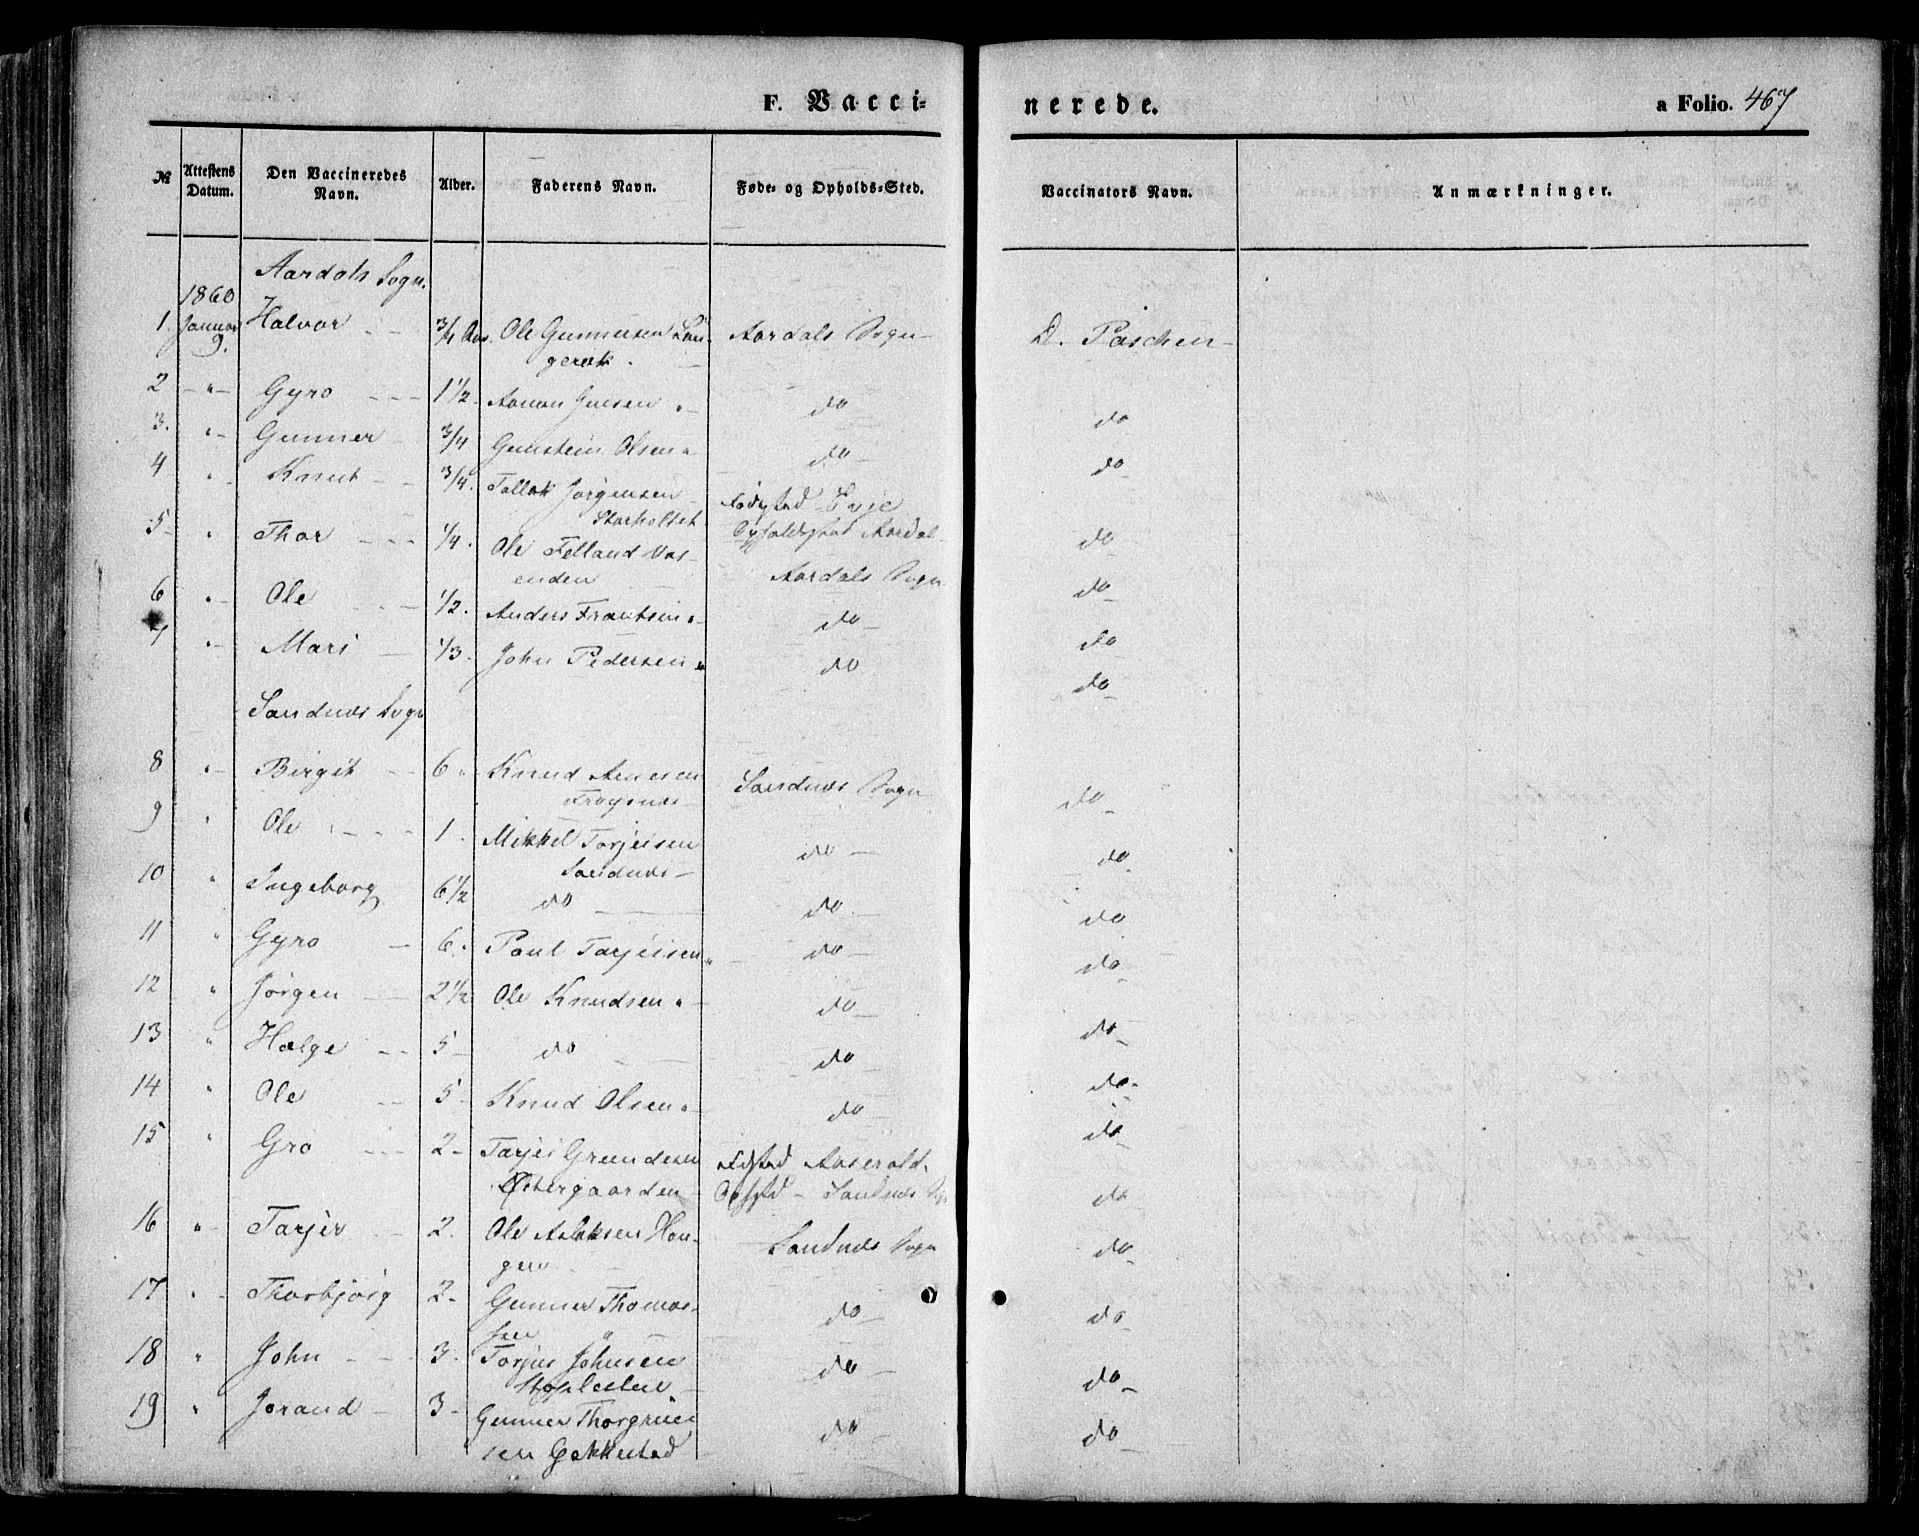 F. Vacci-
nerede.
a Folio. 467
№
Attestens Datum.
Den Vaccineredes Navn.
Alder.
Faderens Navn.
Føde- og Opholds-Sted.
Vaccinators Navn.
Anmærkninger.
Aardals Sogn.
1860
1. Januar 9. Halvor 3/4 Aar. Ole Gunnersen Lan- Aardals Sogn D. Paschen
gerak.
2 " Gyro 1 1/2 Jensen " do do
3. " Gunner 3/4 Gunstein Olsen " do do
4 " Knut 3/4. Tallak Jørgensen Fødested Evje do
Storholtet Opholdsted Aardal
5 " Thor 1/4. Ole Felland Vas- Aardals Sogn do
enden
6 " Ole 1/2. Anders Frantsen " do do
7 " Mari 1/3 John Pedersen " do do
Sandnes Sogn
8 " Birgit 6 " Knud Arnesen Sandnes Sogn do
Frøysnes
9 " Ole 1. Mikkel Torjeisen do do
Sandnes
10 " Ingeborg 6 1/2 do do do
11 " Gyro 6. Poul Tarjeisen " do do
12 " Jørgen 2 1/2 Ole Knudsen " do do
13 " Hælge 5 do do do
14 " Ole 5 Knud Olsen " do do
15 " Gro 2 Tarjei Aaserald. do
Østergaarden Sandnes Sogn
16 " Tarjer 2. Ole Aslaksen Hou- Sandnes Sogn do
gen
17 " Thorbjørg 2 Gunner Thomas- do do
sen "
18 " John 3. Torjus Johnsen do do
19 " Jorand 3 Gunner Thorgrim do do
sen